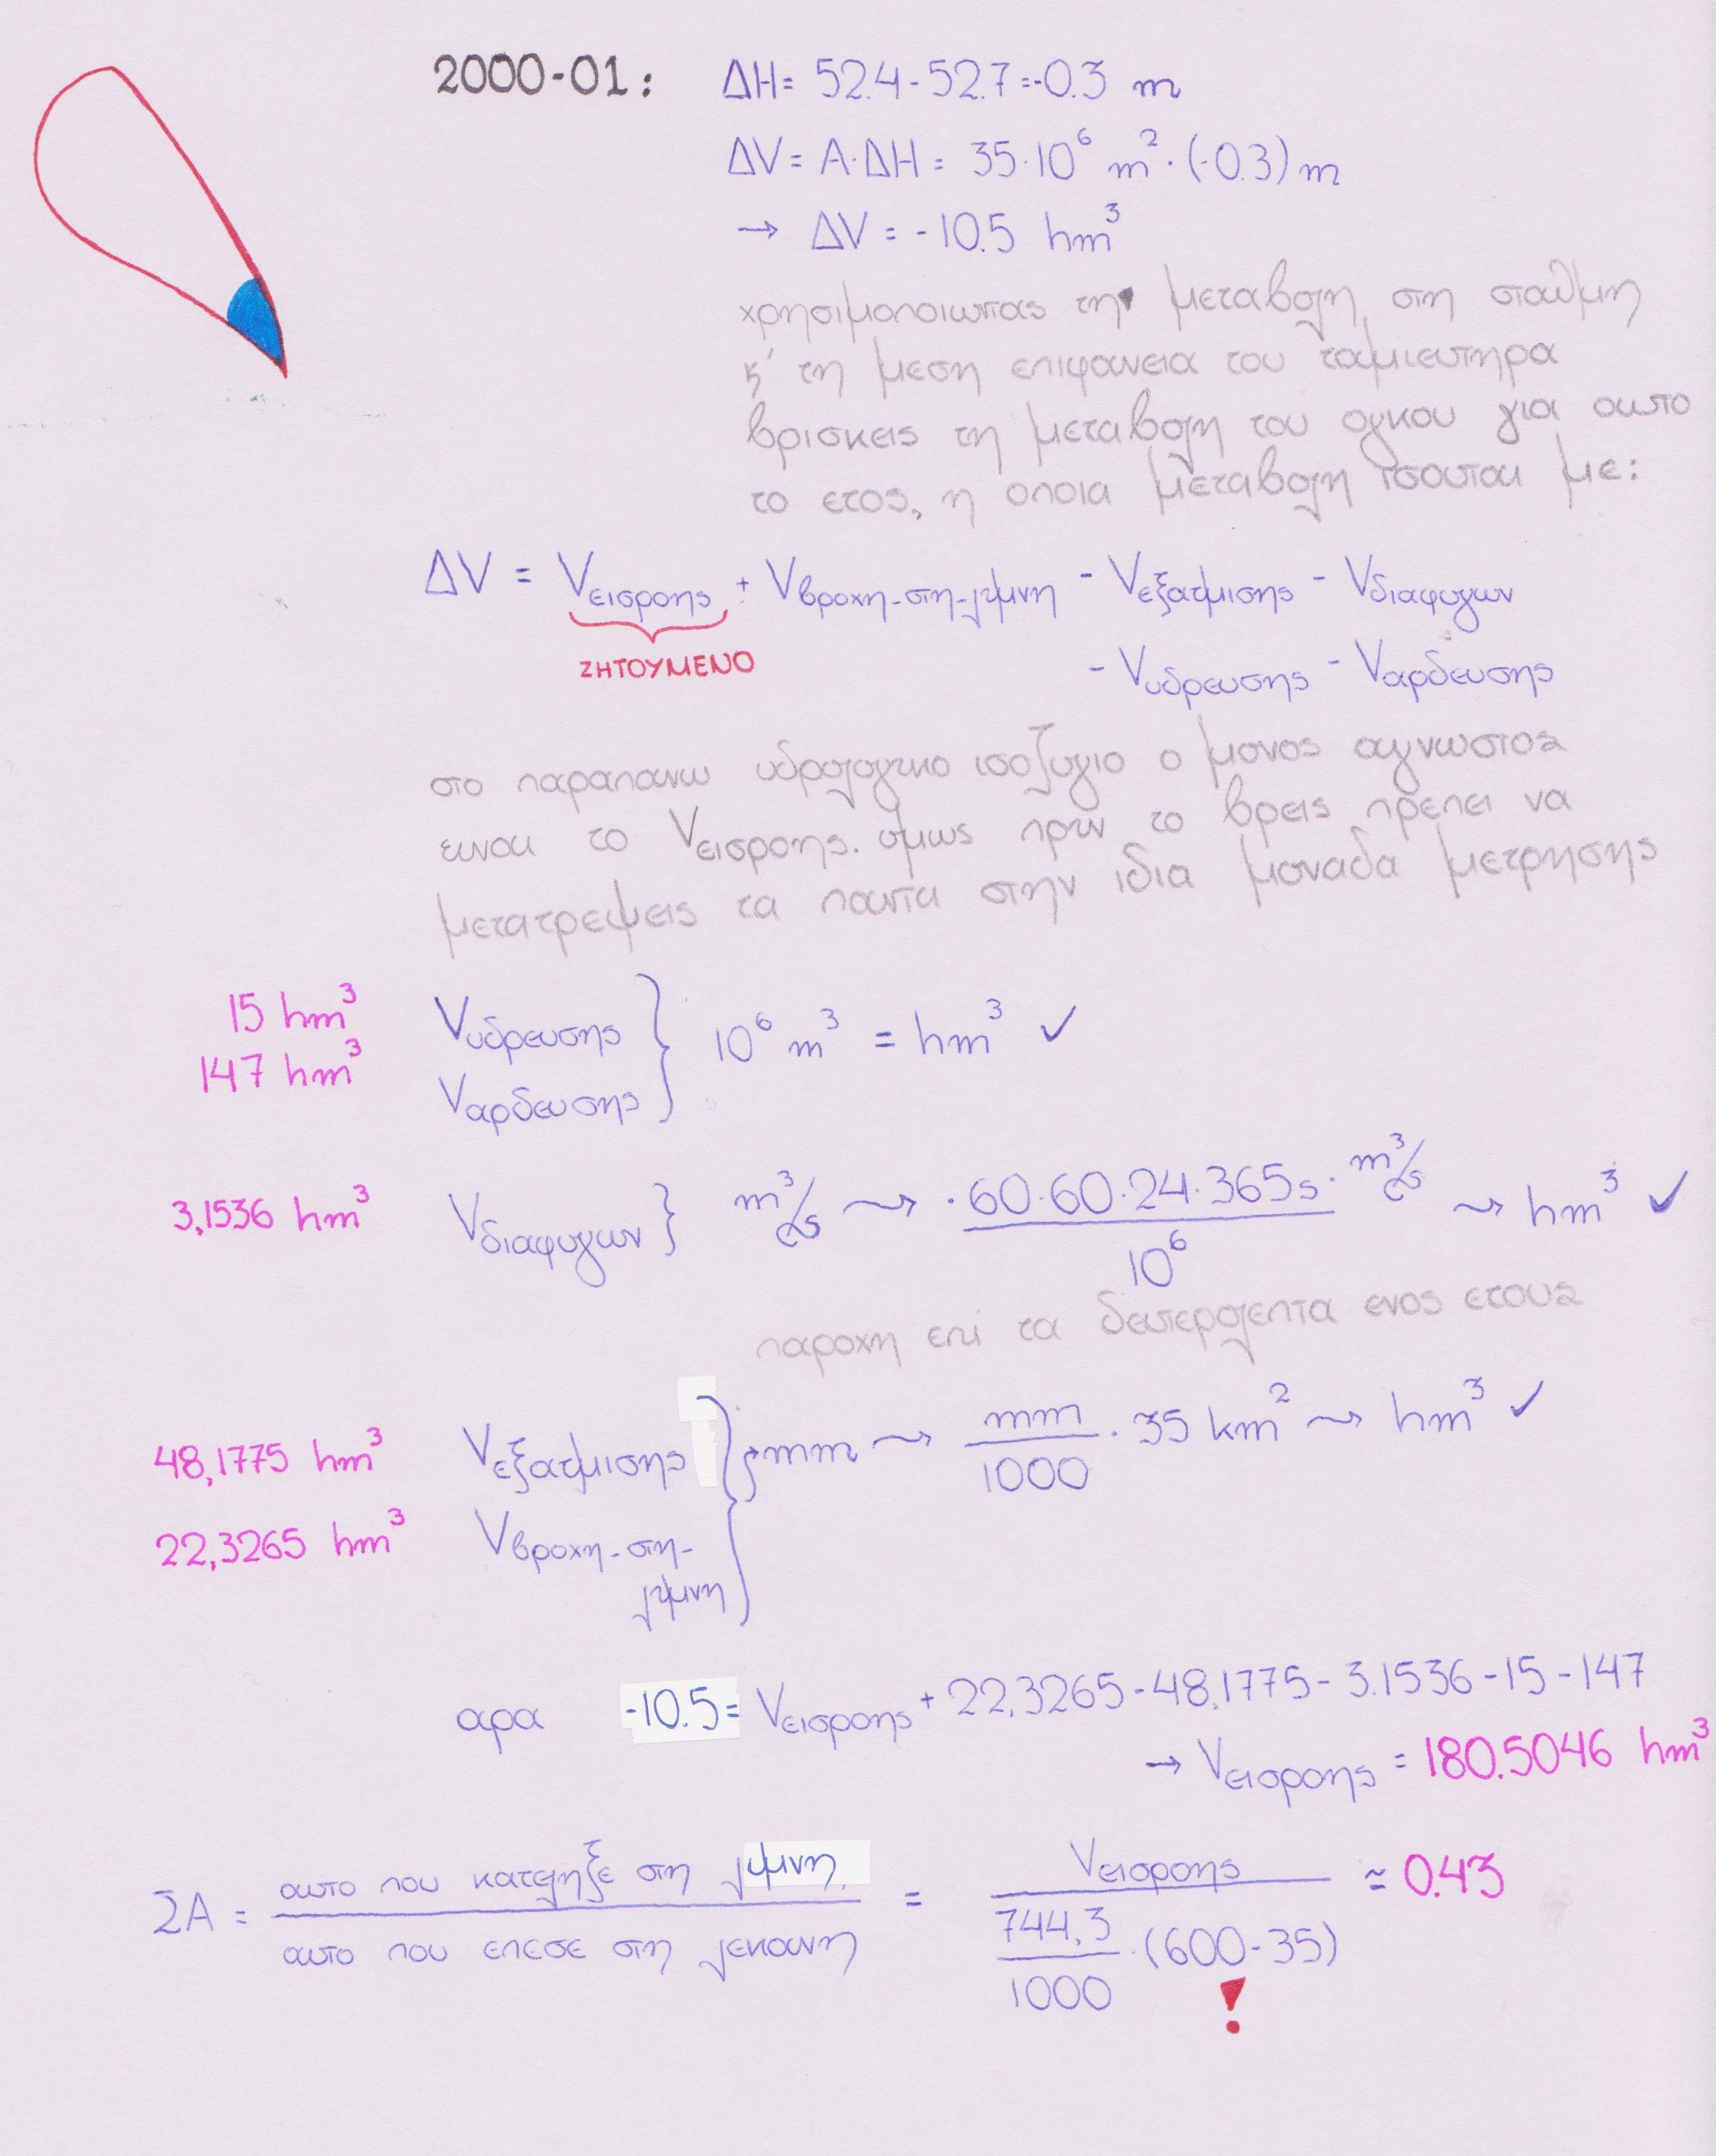 2000-01: ΔH= 52.4-52.7=-0.3 m
ΔV= A·ΔH = 35·10⁶ m²·(-0.3) m
→ ΔV = -10.5 hm³
χρησιμοποιωντας τη μεταβολη στη σταθμη
κ' τη μεση επιφανεια του ταμιευτηρα
βρισκεις τη μεταβολη του ογκου για αυτο
το ετος, η οποια μεταβολη ισουται με:
ΔV = Vεισροης + Vβροχη-στη-λιμνη - Vεξατμισης - Vδιαφυγων
ΖΗΤΟΥΜΕΝΟ
- Vυδρευσης - Vαρδευσης
στο παραπανω υδρολογικο ισοζυγιο ο μονος αγνωστος
ειναι το Vεισροης. ομως πριν το βρεις πρεπει να
μετατρεψεις τα παντα στην ιδια μοναδα μετρησης
15 hm³ Vυδρευσης
147 hm³ Vαρδευσης } 10⁶ m³ = hm³ ✓
3,1536 hm³ Vδιαφυγων } m³/s → ·60·60·24·365s· m³/s → hm³ ✓
10⁶
παροχη επι τα δευτερολεπτα ενος ετους
48,1775 hm³ Vεξατμισης } mm → mm/1000 · 35 km² → hm³ ✓
22,3265 hm³ Vβροχη-στη-
λιμνη
αρα -10.5= Vεισροης + 22,3265 - 48,1775 - 3.1536 - 15 - 147
→ Vεισροης = 180.5046 hm³
ΣΑ = αυτο που κατεληξε στη λιμνη = Vεισροης ≈ 0.43
αυτο που επεσε στη λεκανη 744,3/1000 · (600-35)
!